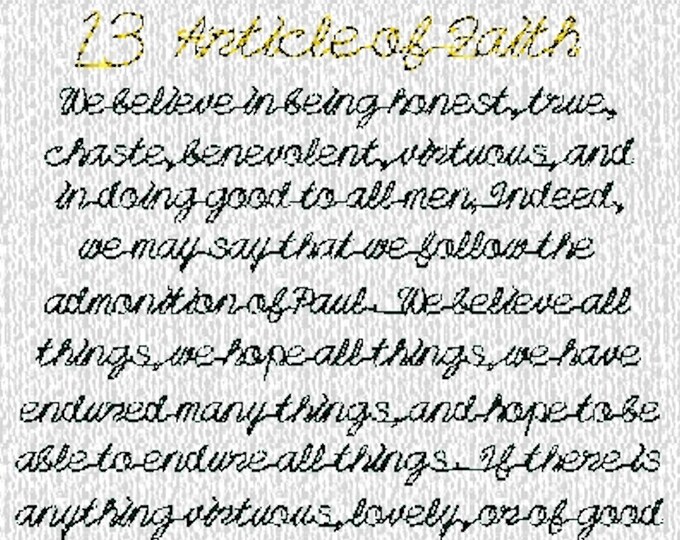 13 Article of Faith
We believe in being honest, true,
chaste, benevolent, virtuous, and
in doing good to all men, Indeed,
we may say that we follow the
admonition of Paul. We believe all
things, we hope all things, we have
endured many things, and hope to be
able to endure all things. If there is
anything virtuous, lovely, or of good